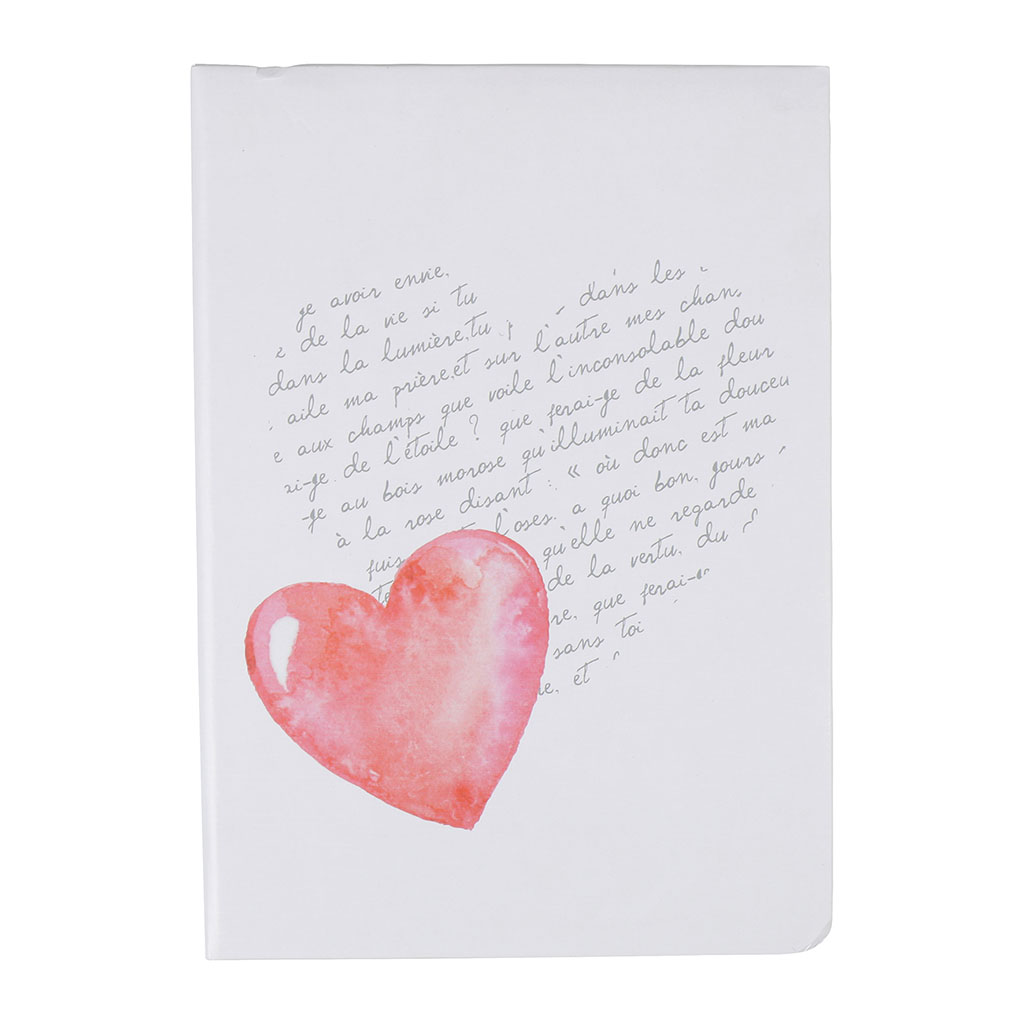 ge avoir envie,
de la vie si tu dans les
dans la lumière,tu
aile ma prière,et sur l'autre mes chan
e aux champs que voile l'inconsolable dou
ai-ge de l'étoile ? que ferai-ge de la fleur
-ge au bois morose qu'illuminait ta douceu
à la rose disant : « où donc est ma
fuis l'oses, a quoi bon, gours
qu'elle ne regarde
de la vertu, du
re, que ferai-
sans toi
e, et